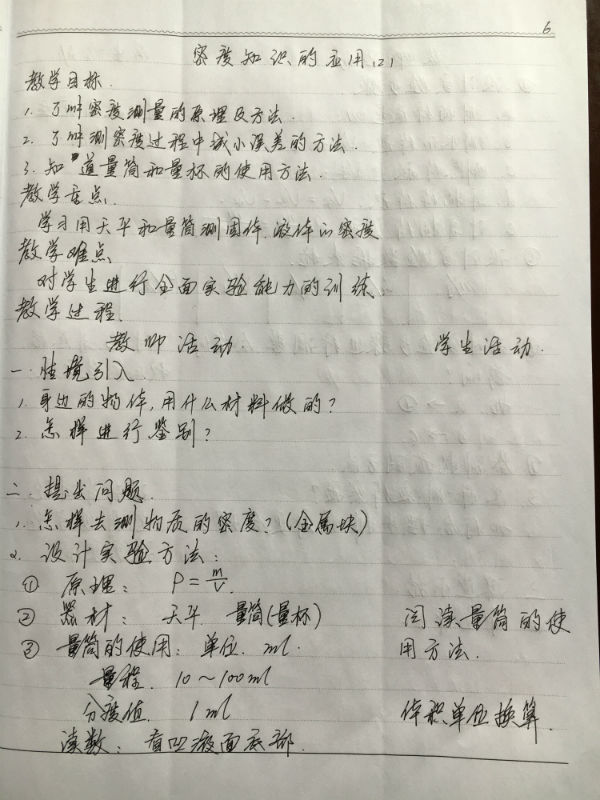 6
密度知识的应用(2)
教学目标.
1. 了解密度测量的原理及方法.
2. 了解测密度过程中减小误差的方法.
3. 知道量筒和量杯的使用方法.
教学重点.
学习用天平和量筒测固体.液体的密度
教学难点
对学生进行全面实验能力的训练.
教学过程.
教师活动 学生活动.
一. 情境引入.
1. 身边的物体,用什么材料做的?
2. 怎样进行鉴别?
二. 提出问题.
1. 怎样去测物质的密度?(金属块)
2. 设计实验方法:
① 原理: ρ=m/V.
② 器材: 天平. 量筒(量杯) 阅读量筒的使
③ 量筒的使用: 单位. ml. 用方法.
量程. 10~100ml
分度值. 1ml 体积单位换算.
读数: 看凹液面底部.